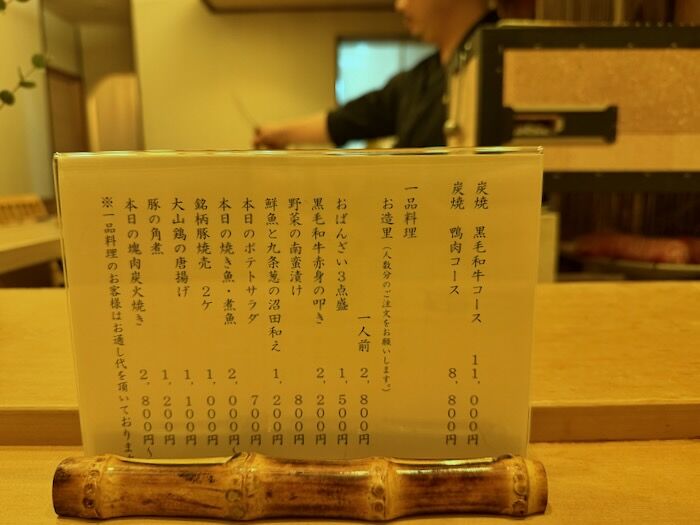 炭焼 黒毛和牛コース 11,000円
炭焼 鴨肉コース 8,800円
一品料理
お造里(人数分のご注文をお願いします。)
一人前 2,800円
おばんざい3点盛 1,500円
黒毛和牛赤身の叩き 2,200円
野菜の南蛮漬け 800円
鮮魚と九条葱の沼田和え 1,200円
本日のポテトサラダ 700円
本日の焼き魚・煮魚 2,000円〜
銘柄豚焼売 2ケ 1,000円
大山鶏の唐揚げ 1,100円
豚の角煮 1,200円
本日の塊肉炭火焼き 2,800円〜
※一品料理のお客様はお通し代を頂いておりま